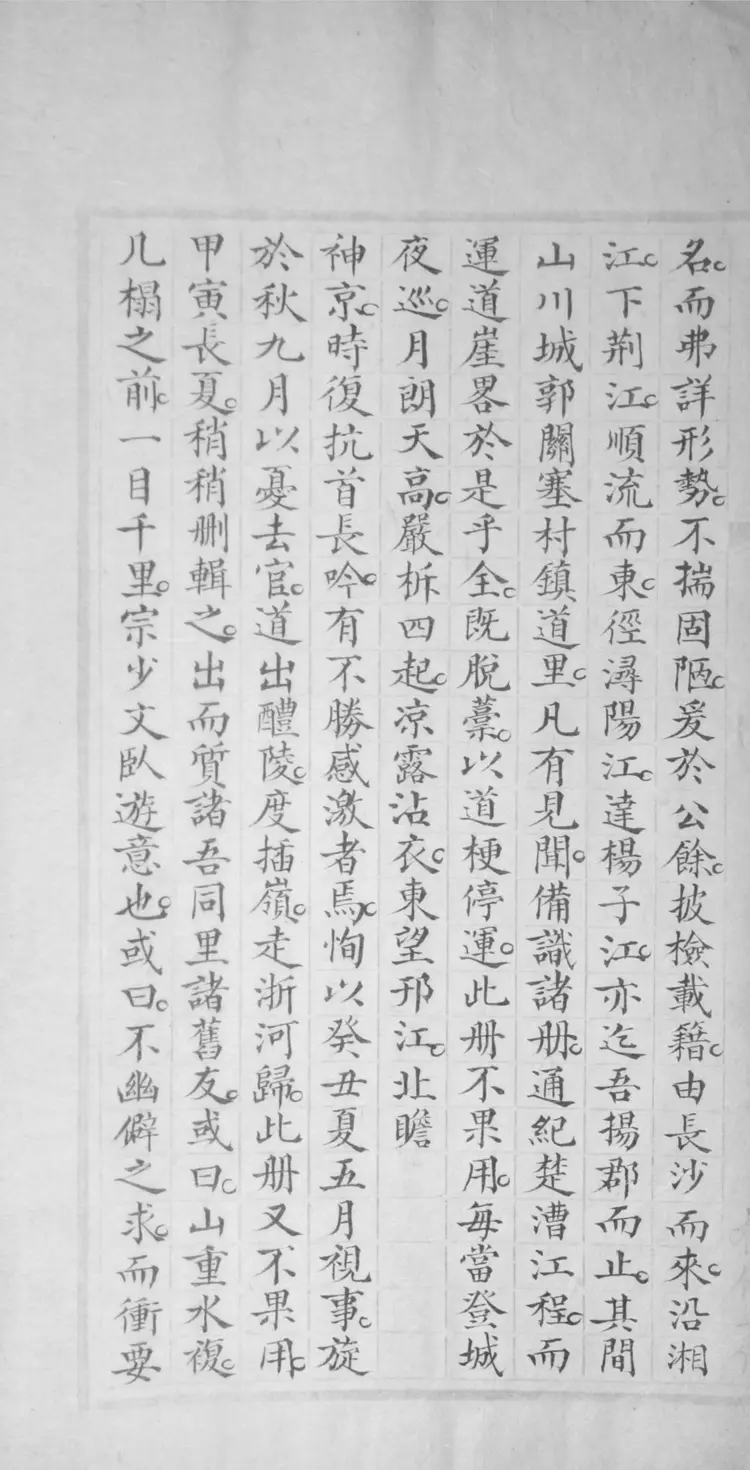 名。而弗詳形勢。不揣固陋。爰於公餘。披檢載籍。由長沙而來。沿湘
江。下荆江。順流而東。徑潯陽江。達楊子江。亦迄吾揚郡而止。其間
山川城郭關塞村鎮道里。凡有見聞。備識諸册。通紀楚漕江程。而
運道崖畧於是乎全。既脫藁。以道梗停運。此册不果用。每當登城
夜巡。月朗天高。嚴柝四起。凉露沾衣。東望邗江。北瞻
神京。時復抗首長吟。有不勝感激者焉。恂以癸丑夏五月視事。旋
於秋九月以憂去官。道出醴陵。度插嶺。走浙河歸。此册又不果用。
甲寅長夏。稍稍删輯之。出而質諸吾同里諸舊友。或曰。山重水複。
几榻之前。一目千里。宗少文臥遊意也。或曰。不幽僻之求。而衝要